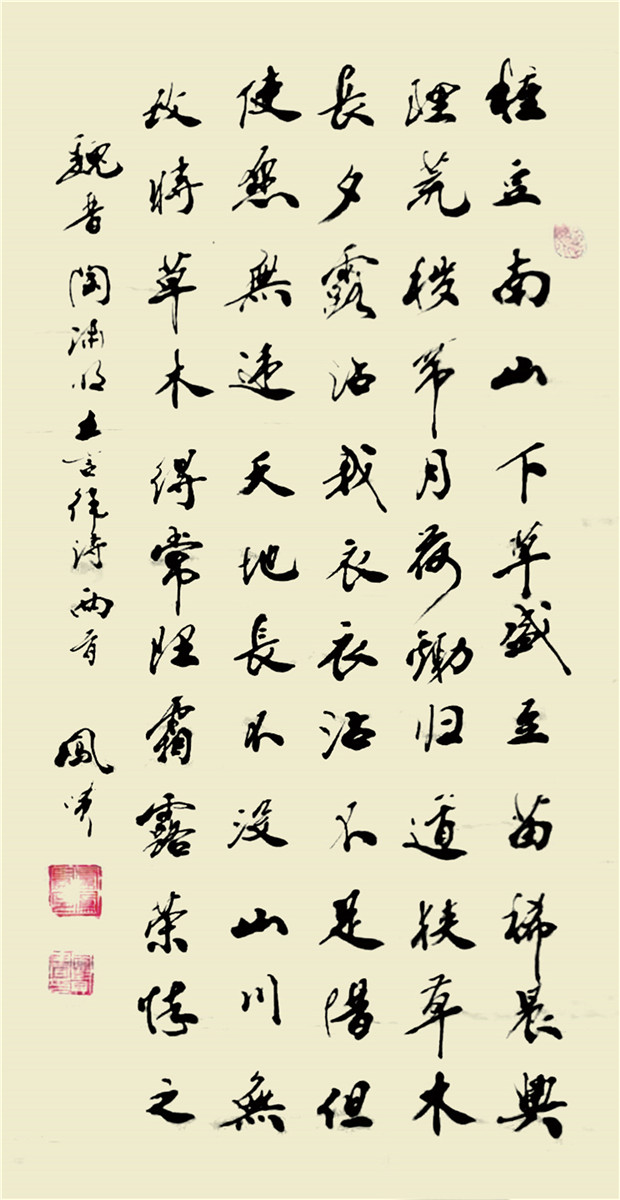 種豆南山下草盛豆苗稀晨興
理荒穢帶月荷鋤归道狹草木
長夕露沾我衣衣沾不足惜但
使愿無违天地長不没山川無
改時草木得常理霜露荣悴之
魏晋陶渊明五言律诗两首 鳳